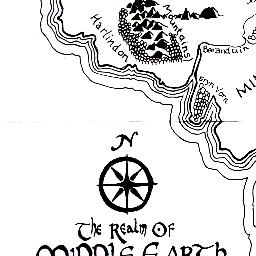 Harlindon
Mountains
Baranduin
Eryn Vorn
N
The Realm Of
Middle Earth